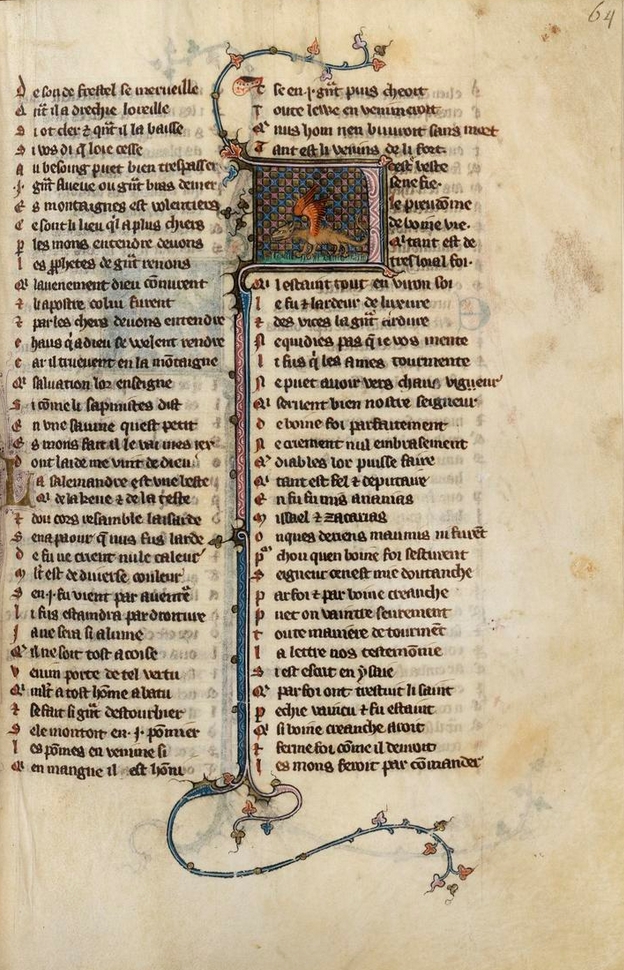 64
D e son de frestel se merveille
Q nt il a drechie loreille
S i ot cler & qnt il la baisse
S i vos di q̄ loie cesse
A u besoing puet bien trespasser
.I. gnt flueve ou gnt bras de mer
E s montaignes est volentiers
C e sont li lieu q'l a plus chiers
P les mons entendre devons
L es pphetes de gnt renons
Q' lavenement dieu cōnurent
& li apostre
& par les chers devons entendre
C haus q' a dieu se welent rendre
C ar il truevent en la mōtaigne
Q' salvation lor enseigne
S i cōme li sapmistes dist
E n une saume quest petit
E s mons fait il le vai mes iex
D ont laide me vint de dieu
L a salemandre est une beste
Q' de la keue & de la teste
& dou cors resamble laisarde
S ena paour q̄ nus fus larde
D e fu ne crient nule caleur
M lt est de diverse couleur
S en .i. fu vient par aventē
L i fus estaindra par droiture
J a ne sera si alume
Q' il ne soit tost acoise
V enim porte de tel vertu
Q' mlt a tost hōme abatu
& se fait si gnt destourbier
S ele montoit en .i. pōmier
L es pōmes en venime si
Q' en mangue il est hōni
& se en .i. gnt puis cheoit
T oute lewe en venimeroit
Q' nus hom nen buvroit sans mort
T ant est li venins de li fort
Ceste beste
senefie
le preudōme
de bone vie
Q' tant est de
tres loial foi
Q' l estaint tout en viron soi
L e fu & lardeur de luxure
& des vices la gnt ardure
N equidies pas q̄ ie vos mente
L i fus q' les ames tourmente
N e puet avoir vers chaus vigueur
Q' servent bien nostre seigneur
D e bone foi parfaitement
N e criement nul embrasement
Q' diables lor puisse faire
Q' tant est fel & deputaire
E n fu fu mis ananias
M isael & zacarias
O nques de riens maumis ni furēt
P' chou quen bone foi
S eigneur cenest mie doutanche
P ar foi & par bone creanche
P uet on vaintre seurement
T oute maniere de tourmēt
L a lettre nos testemōnie
S i est escrit en ysaie
Q' par foi ont trestuit li saint
P echie vaincu & fu estaint
Q' si bone creanche aroit
& ferme foi cōme il devroit
L es mons feroit par cōmander